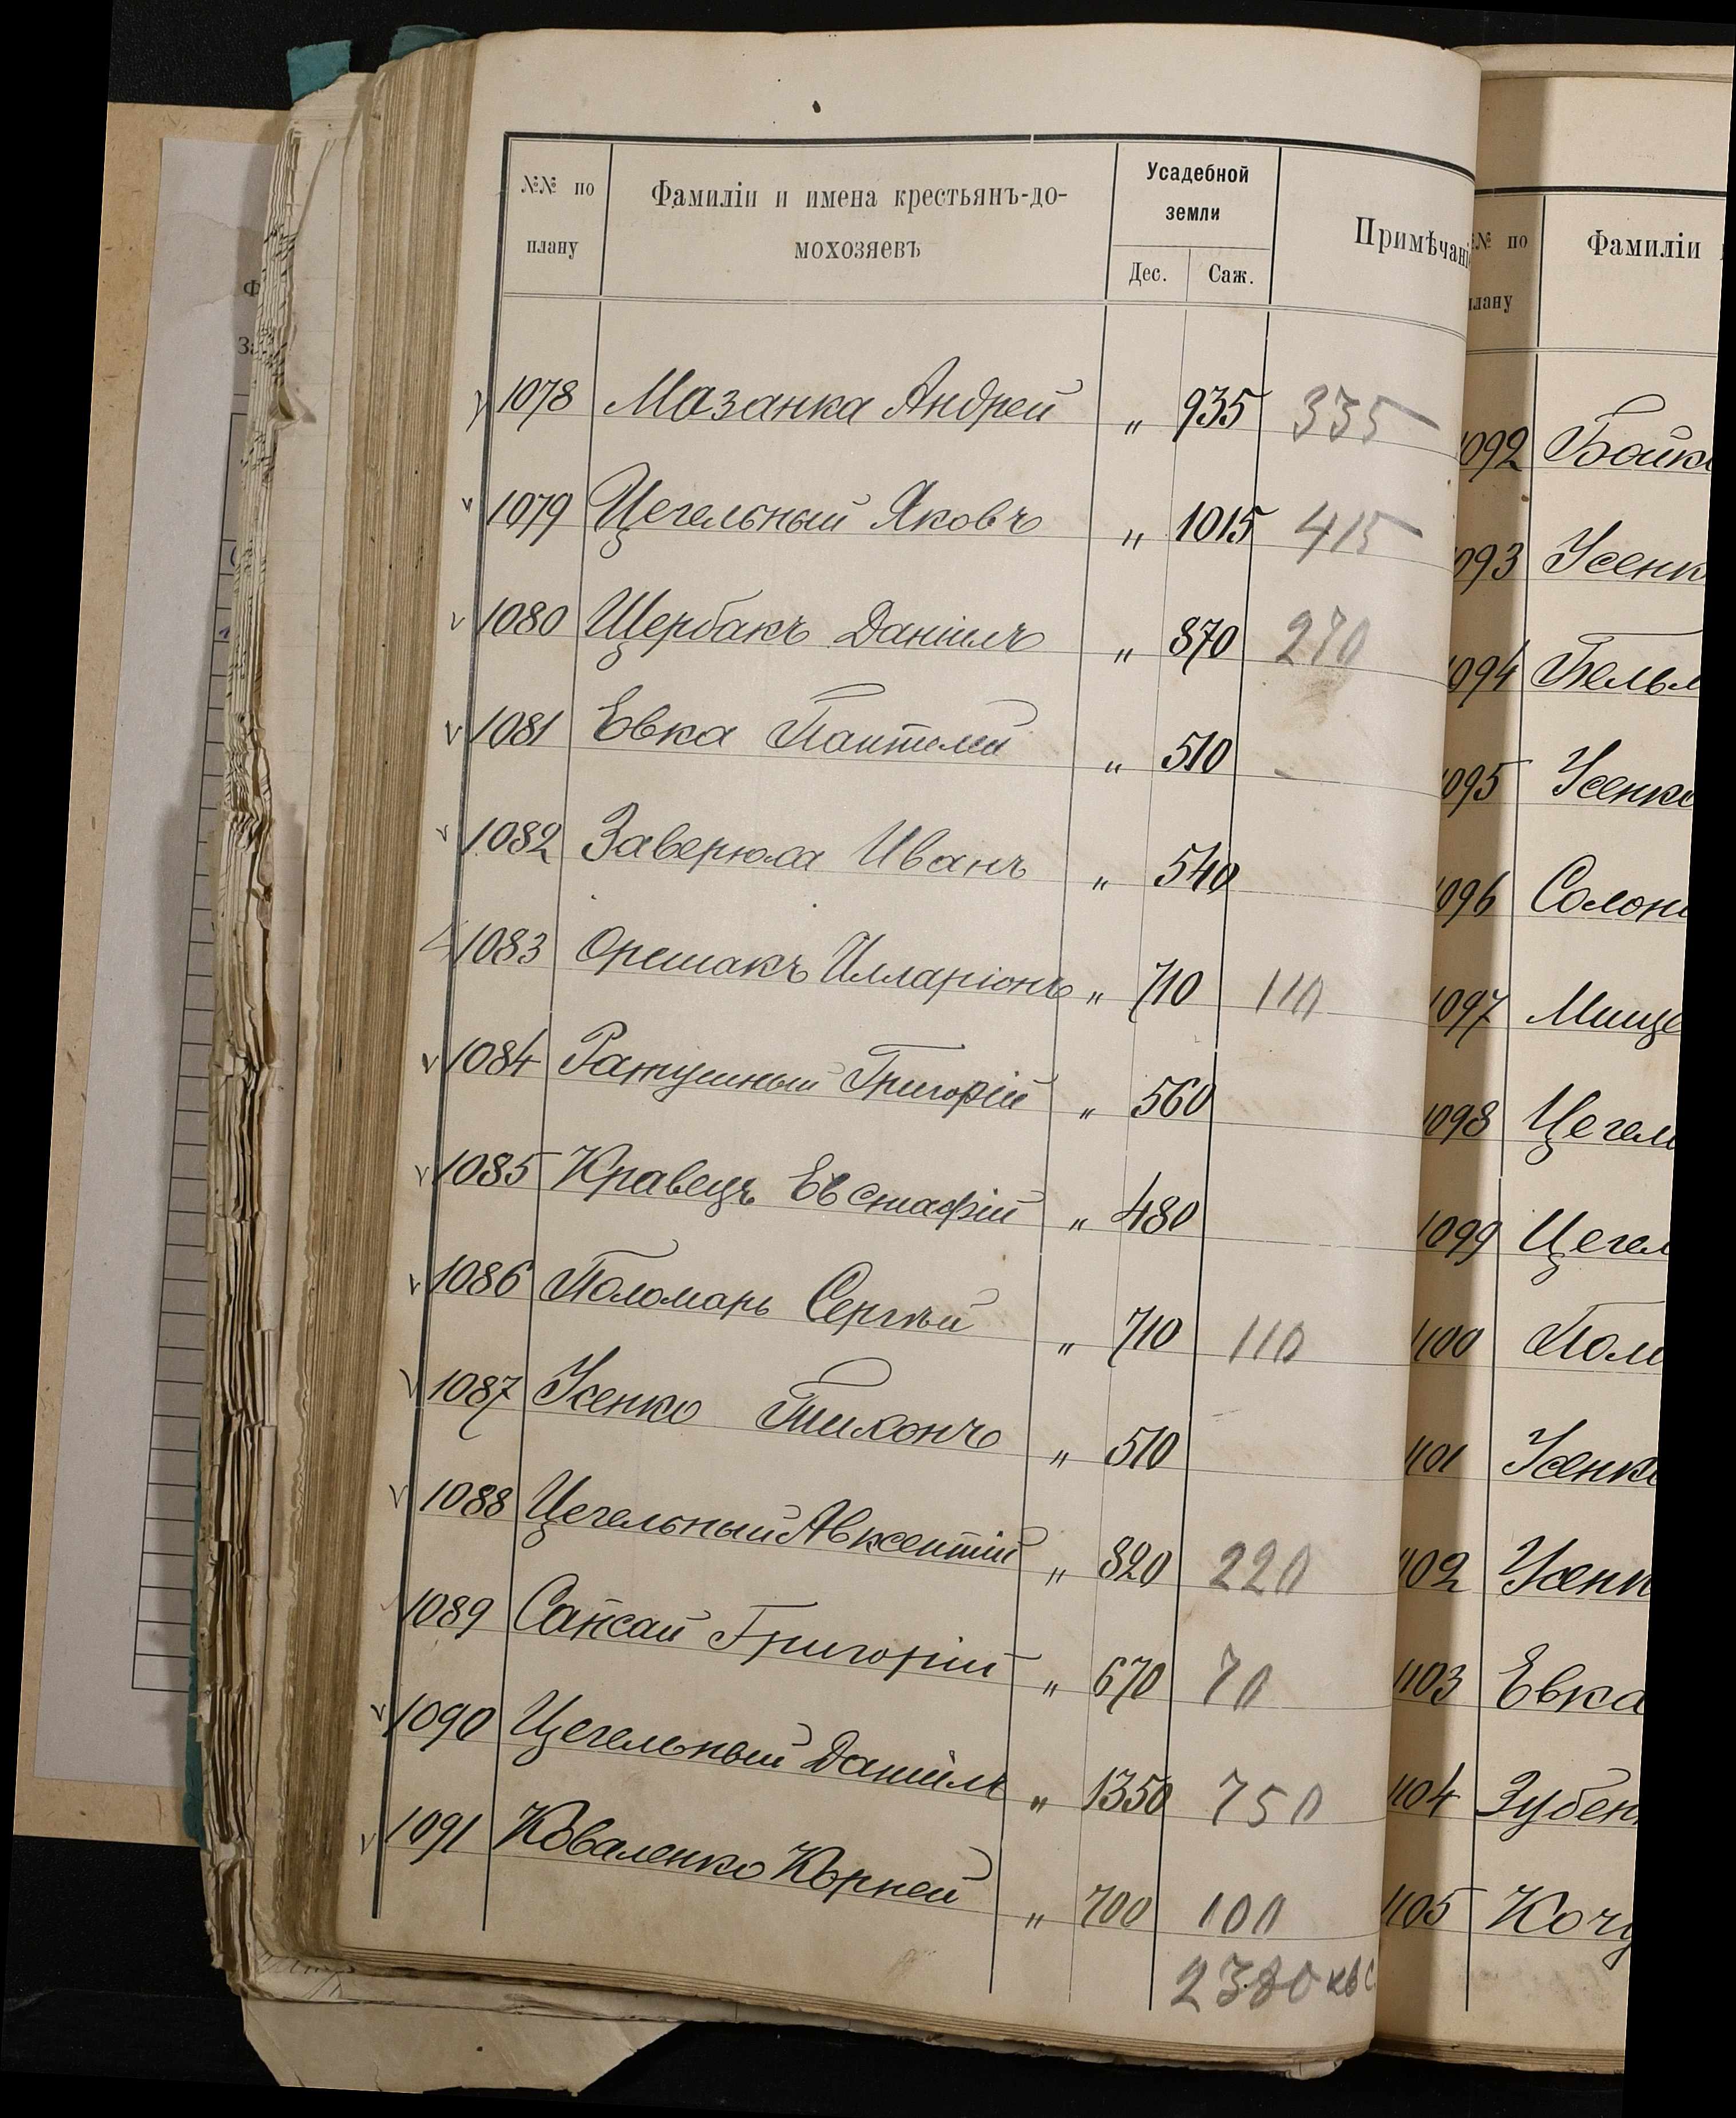 №№ по плану
Фамиліи и имена крестьянъ-до-
мохозяевъ
Усадебной
земли
Дес. Саж.
Примѣчані
1078 Мазанка Андрей " 935 335
1079 Цегельный Яковъ " 1015 415
1080 Щербакъ Даніилъ " 870 270
1081 Евка Пантелей " 510
1082 Заверюха Иванъ " 540
1083 Орешакъ Илларіонъ " 710 110
1084 Ратушный Григорій " 560
1085 Кравецъ Евстафій " 480
1086 Поломарь Сергѣй " 710 110
1087 Усенко Тихонъ " 510
1088 Цегельный Авксентій " 820 220
1089 Сапсай Григорій " 670 70
1090 Цегельный Даніилъ " 1350 750
1091 Коваленко Корней " 700 100
2380 кв с
№ по
плану
Фамиліи
1092 Бойк
1093 Усенк
1094 Бельм
1095 Усенко
1096 Солон
1097 Мище
1098 Цегел
1099 Цегел
1100 Пол
1101 Усенк
1102 Усен
1103 Евка
1104 Зубен
1105 Коч